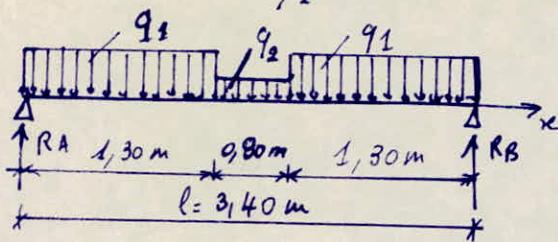 q1 q2 q1
x
RA 1,30 m 0,80 m 1,30 m RB
l = 3,40 m